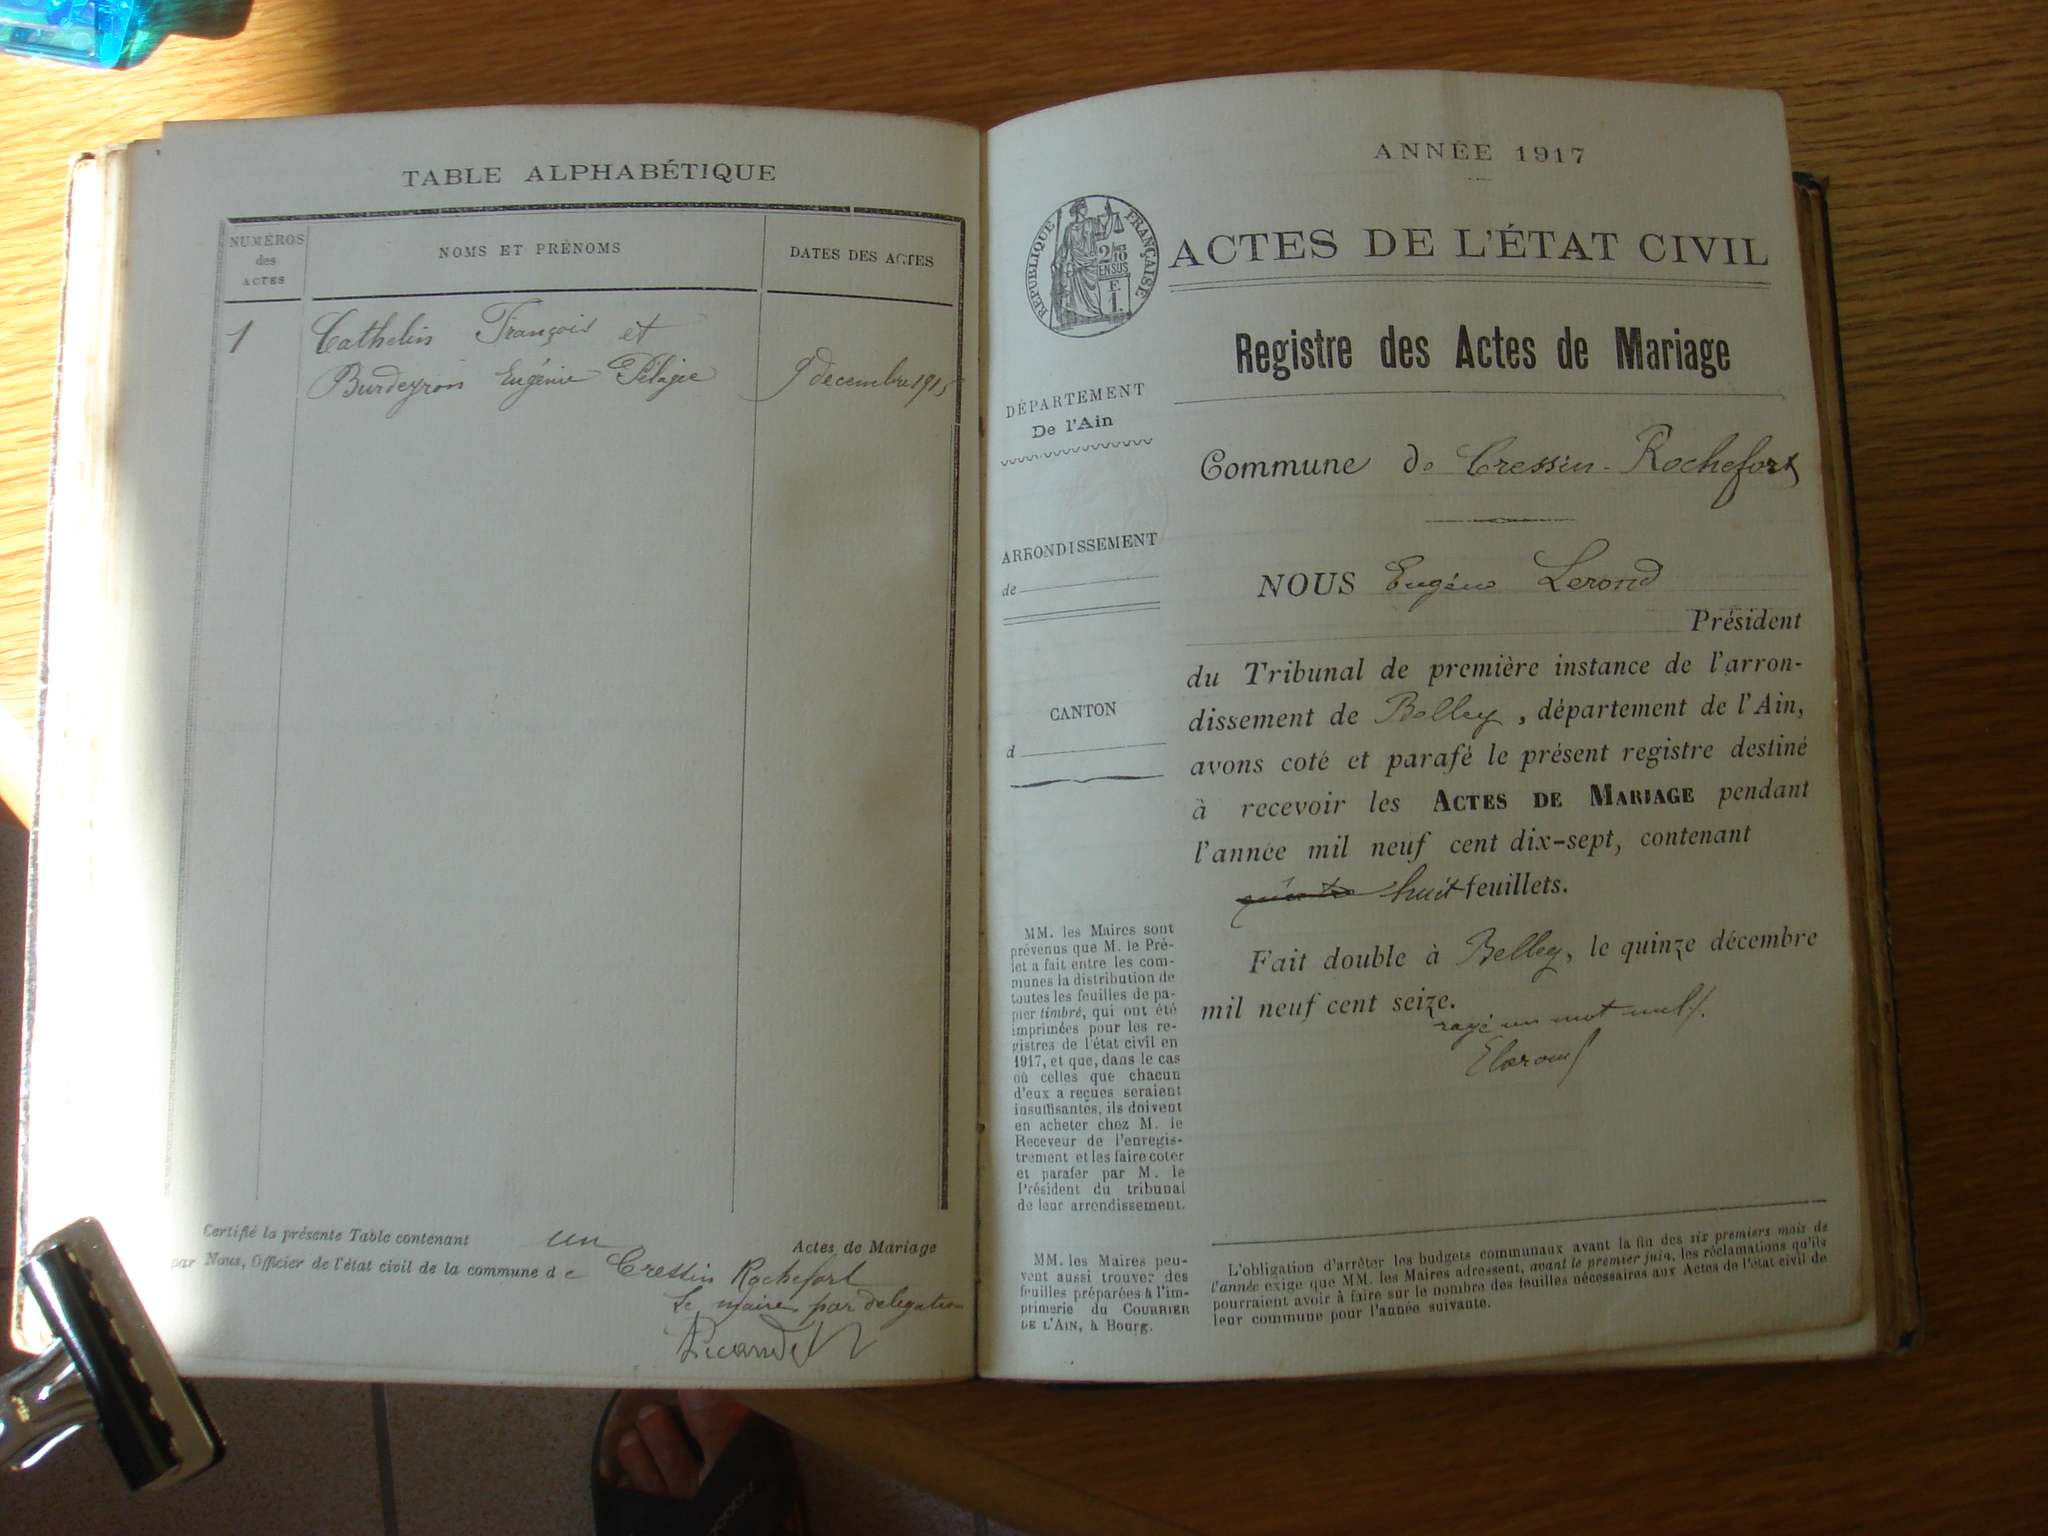 TABLE ALPHABÉTIQUE
NUMÉROS
des
ACTES
NOMS ET PRÉNOMS
DATES DES ACTES
1
Cathelin François et
Burdeyron Eugénie Pélagie
9 décembre 1915
Certifié la présente Table contenant un Actes de Mariage
par Nous, Officier de l'état civil de la commune de Cressin Rochefort
Le maire par delegation
ANNÉE 1917
RÉPUBLIQUE FRANÇAISE
2/10
EN SUS
F.
1.
ACTES DE L'ÉTAT CIVIL
Registre des Actes de Mariage
DÉPARTEMENT
De l'Ain
Commune de Cressin-Rochefort
ARRONDISSEMENT
de
NOUS Eugène Lerond
Président
du Tribunal de première instance de l'arron-
dissement de Belley, département de l'Ain,
avons coté et parafé le présent registre destiné
à recevoir les ACTES DE MARIAGE pendant
l'année mil neuf cent dix-sept, contenant
huit feuillets.
Fait double à Belley, le quinze décembre
mil neuf cent seize.
rayé un mot nul.
CANTON
d
MM. les Maires sont
prévenus que M. le Pré-
fet a fait entre les com-
munes la distribution de
toutes les feuilles de pa-
pier timbré, qui ont été
imprimées pour les re-
gistres de l'état civil en
1917, et que, dans le cas
où celles que chacun
d'eux a reçues seraient
insuffisantes, ils doivent
en acheter chez M. le
Receveur de l'enregis-
trement et les faire coter
et parafer par M. le
Président du tribunal
de leur arrondissement.
MM. les Maires peu-
vent aussi trouver des
feuilles préparées à l'im-
primerie du COURRIER
DE L'AIN, à Bourg.
L'obligation d'arrêter les budgets communaux avant la fin des six premiers mois de
l'année exige que MM. les Maires adressent, avant le premier juin, les réclamations qu'ils
pourraient avoir à faire sur le nombre des feuilles nécessaires aux Actes de l'état civil de
leur commune pour l'année suivante.